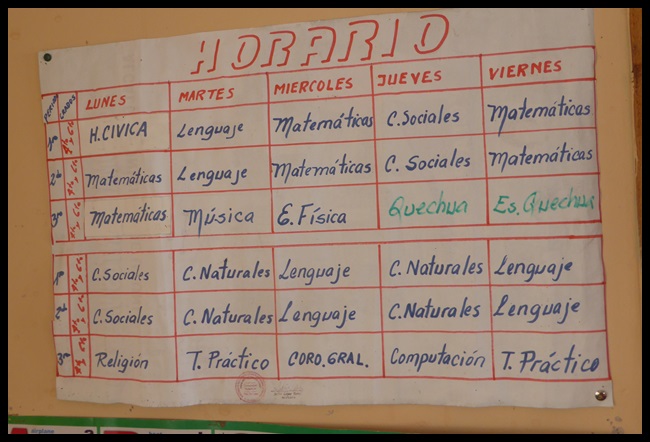 HORARIO
PERIOD GRADOS LUNES MARTES MIERCOLES JUEVES VIERNES
1º H. CIVICA Lenguaje Matemáticas C. Sociales Matemáticas
2º Matemáticas Lenguaje Matemáticas C. Sociales Matemáticas
3º Matemáticas Música E. Física Quechua Es. Quechua
1º C. Sociales C. Naturales Lenguaje C. Naturales Lenguaje
2º C. Sociales C. Naturales Lenguaje C. Naturales Lenguaje
3º Religión T. Práctico CORO. GRAL. Computación T. Práctico